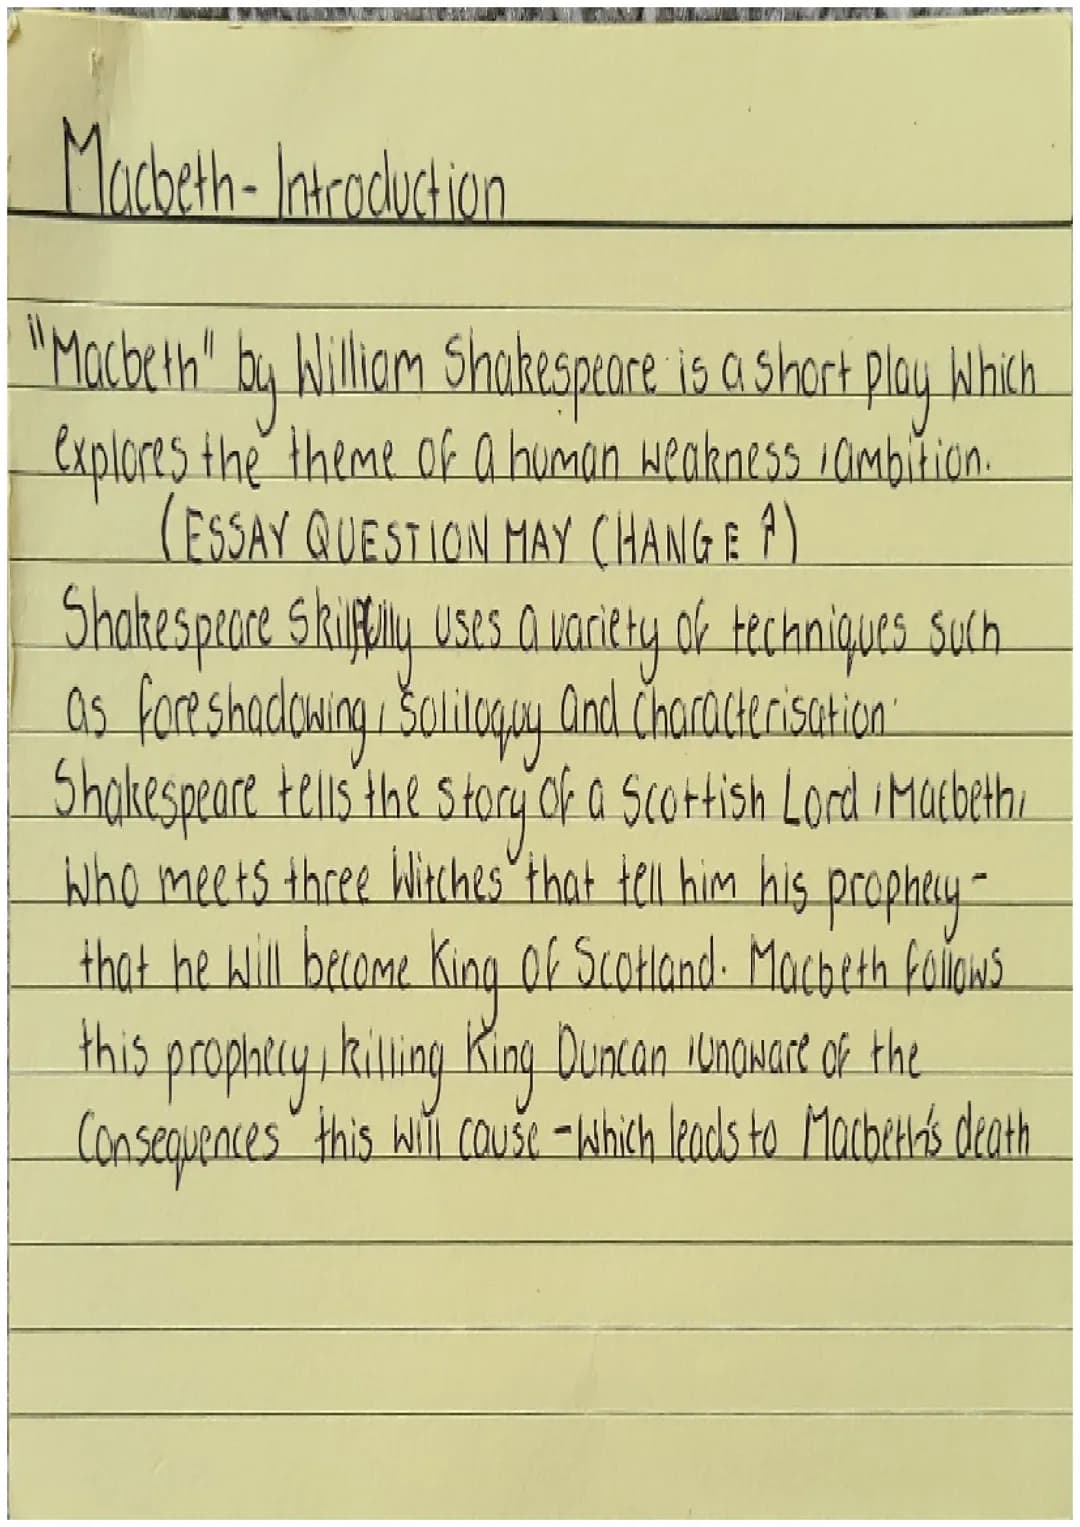 Macbeth - Introduction
"Macbeth" by William Shakespeare is a short play which
explores the theme of a human weakness, ambition.
(ESSAY QUESTION MAY CHANGE ↑)
Shakespeare skilfully uses a variety of techniques such
as foreshadowing, soliloquy and characterisation.
Shakespeare tells the story of a Scottish Lord, Macbeth,
who meets three Witches that tell him his prophecy -
that he will become King of Scotland. Macbeth follows
this prophecy, killing King Duncan, unaware of the
consequences this will cause - which leads to Macbeth's death